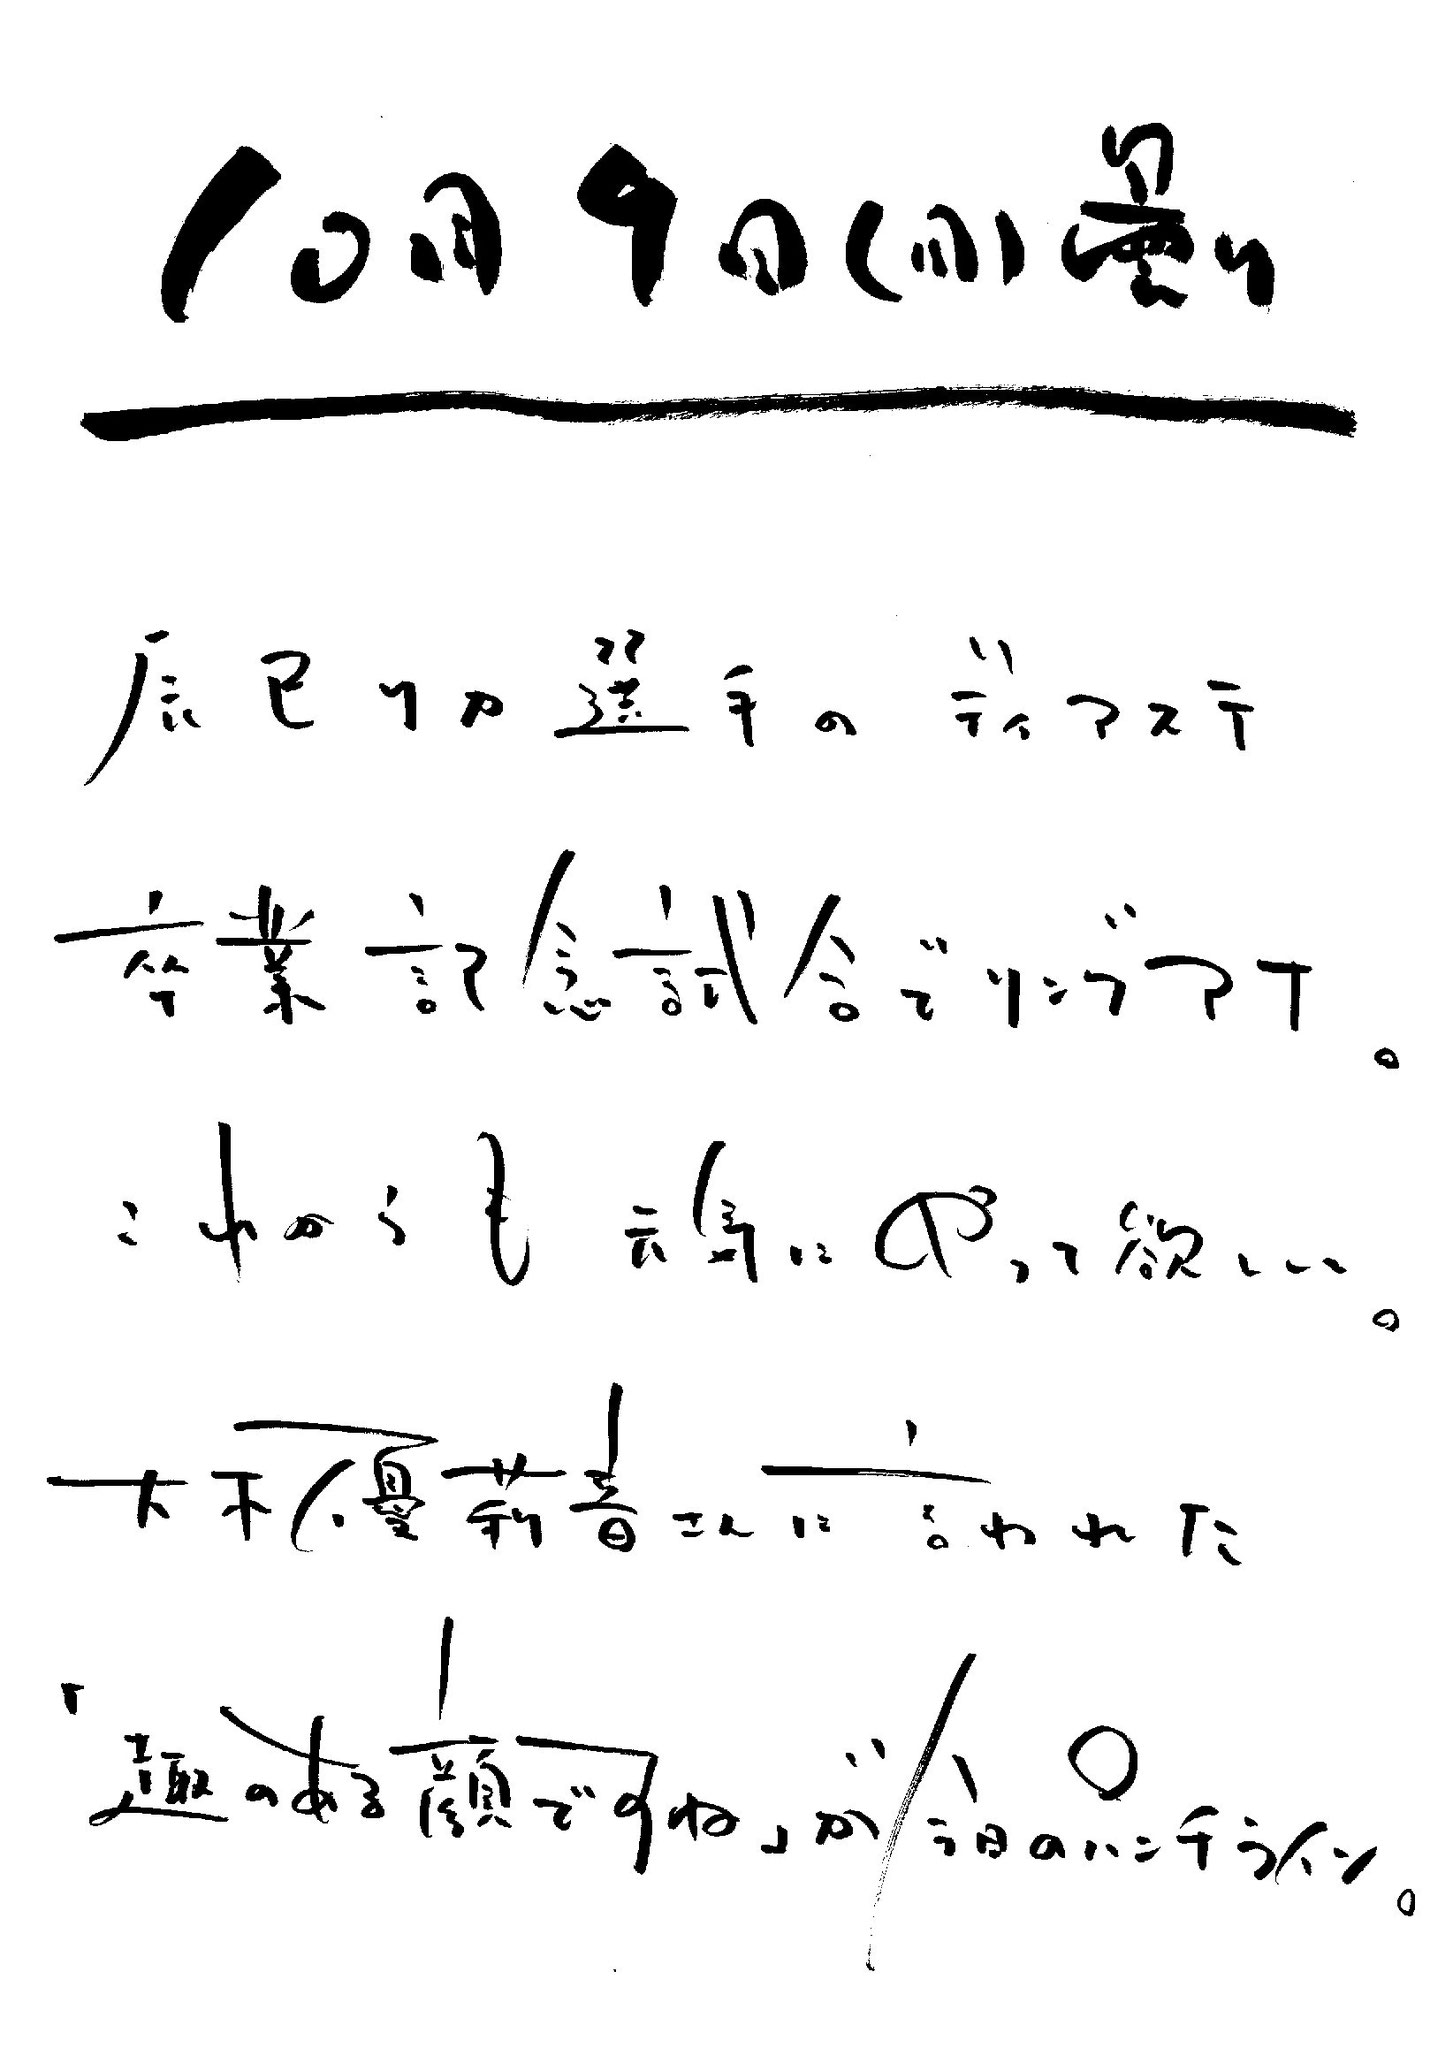 10月9日(月)曇り
辰巳リカ選手のディアステ
卒業記念試合でリングアナ。
これからも元気にやって欲しい。
大木優莉音さんに言われた
「趣のある顔ですね」が今日のパンチライン。